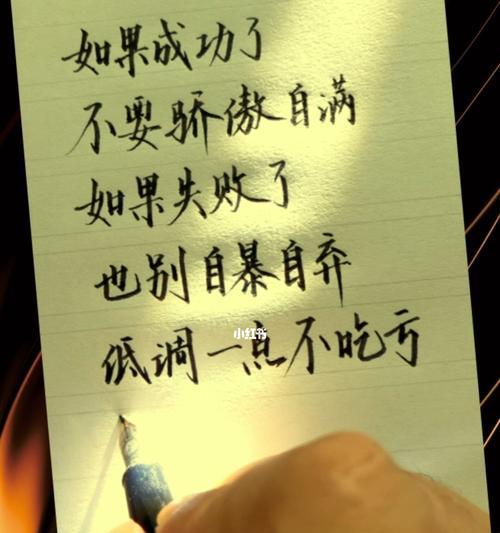 如果成功了
不要骄傲自满
如果失败了
也别自暴自弃
小红书
低调一点不吃亏